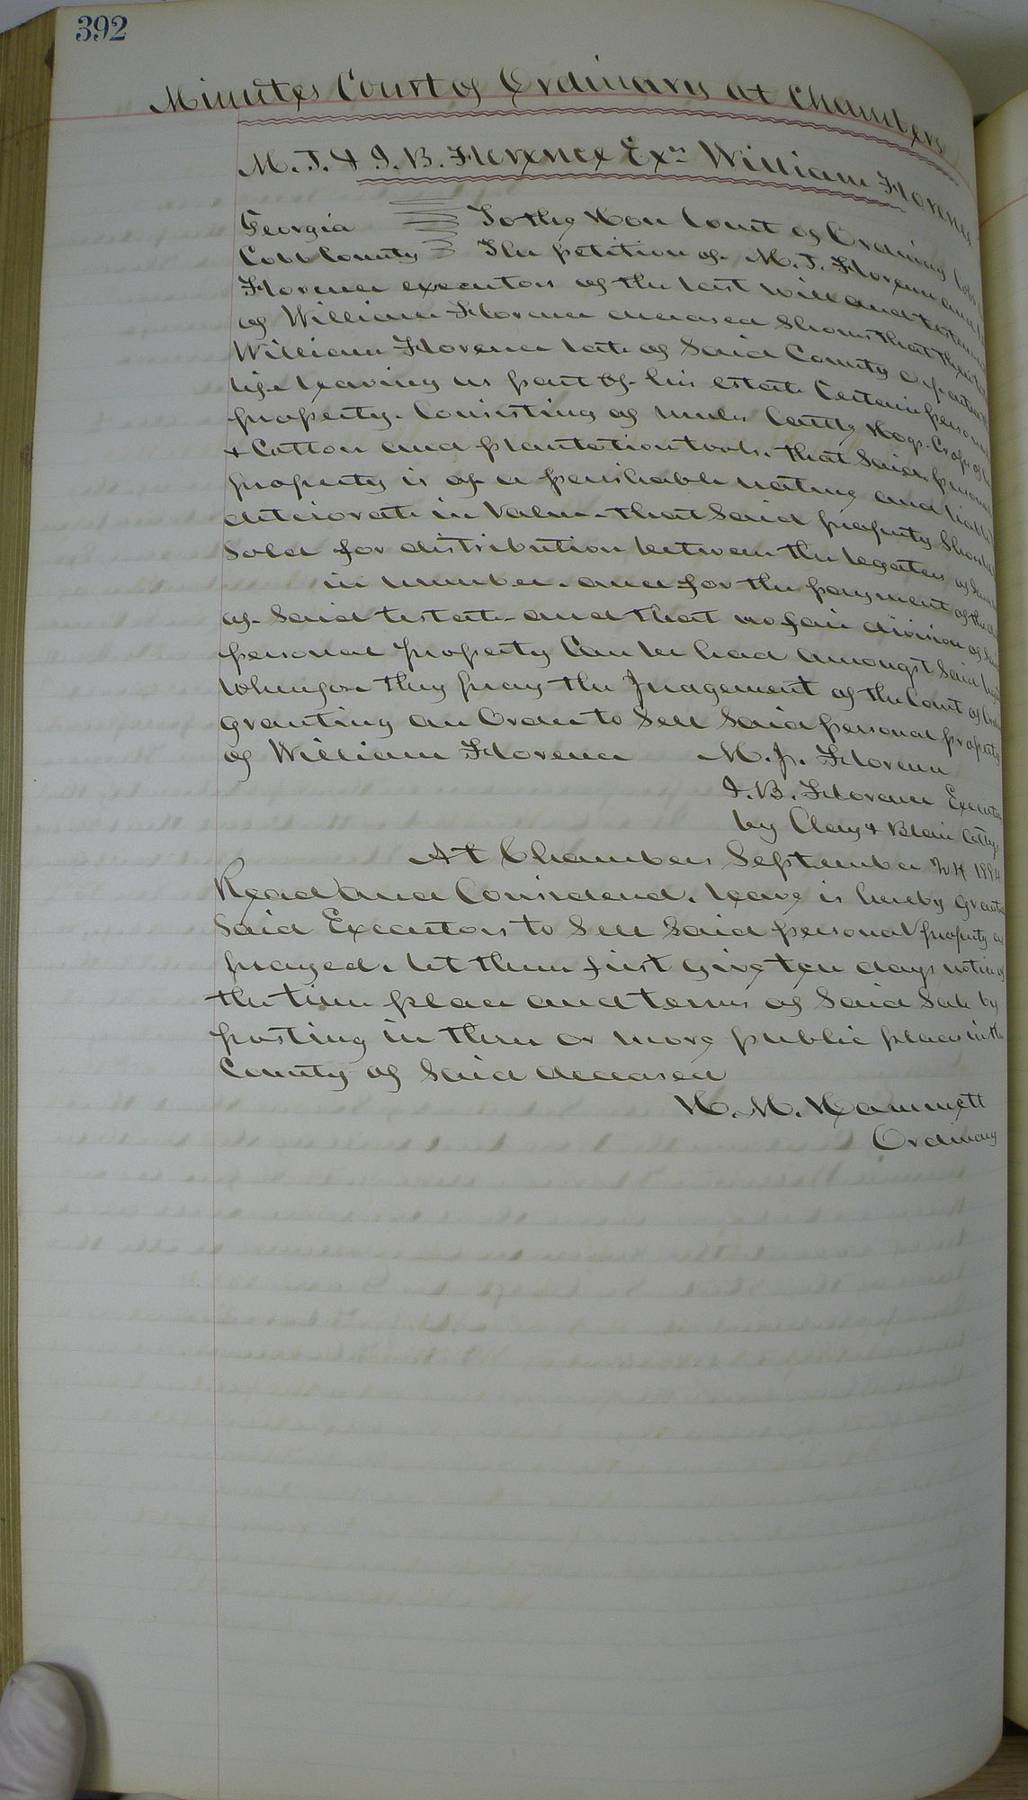 392
Minutes Court of Ordinary at Chambers
M. J. & I. B. Florence Exrs William Florence
Georgia To the Hon Court of Ordinary Cobb
Cobb County The petition of M. J. Florence and
Florence executors of the last will and
of William Florence deceased shows that
William Florence late of Said County departed
life leaving as part of his estate Certain personal
property. Consisting of mules Cattle Hogs. Crops of
& Cotton and plantation tools. that Said personal
property is of a perishable nature and liable
deteriorate in Value. that Said property Should
Sold for distribution between the legatees of
in number. and for the payment of the
of Said testate and that no fair division of Said
personal property Can be had amongst Said
Wherefore they pray the Judgement of the Court of
granting an Order to Sell Said personal property
of William Florence M. J. Florence
I. B. Florence
by Clay & Blair Attys
At Chambers September
Read and Considered. leave is hereby
Said Executors to Sell Said personal property as
prayed. let them first give ten days notice of
the time place and terms of Said Sale by
posting in three or more public places in the
County of Said deceased
H. M. Hammett
Ordinary